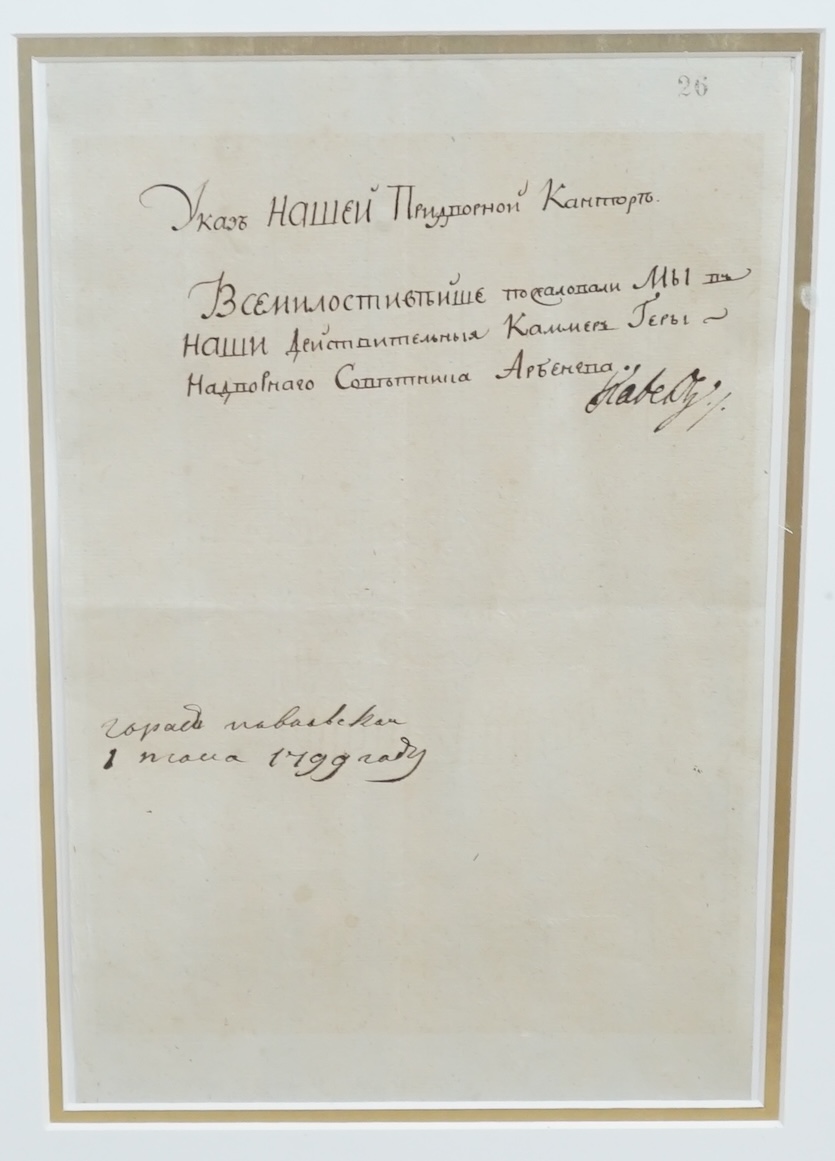 26
Указъ НАШЕЙ Придворной Канторѣ.
Всемилостивѣйше пожаловали МЫ въ
НАШИ Дѣйствительныя Каммеръ Геры
Надворнаго Совѣтника Арбенева.
Павелъ
городъ павловскъ
1799 году